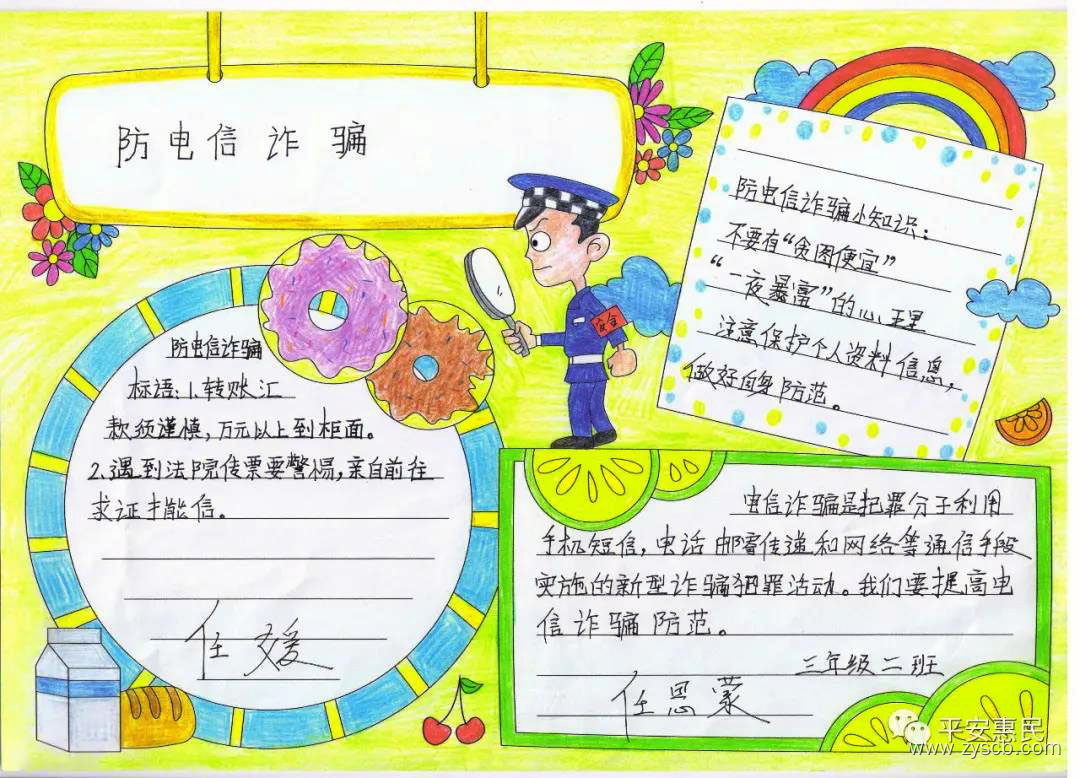 防电信诈骗
防电信诈骗小知识:
不要有“贪图便宜”
“一夜暴富”的心理
注意保护个人资料信息,
做好自身防范。
安全
防电信诈骗
标语:1.转账汇
款须谨慎,万元以上到柜面。
2.遇到法院传票要警惕,亲自前往
求证才能信。
任媛
电信诈骗是犯罪分子利用
手机短信,电话邮寄传递和网络等通信手段
实施的新型诈骗犯罪活动。我们要提高电
信诈骗防范。
三年级二班
任思蒙
平安惠民
www.zyscb.com